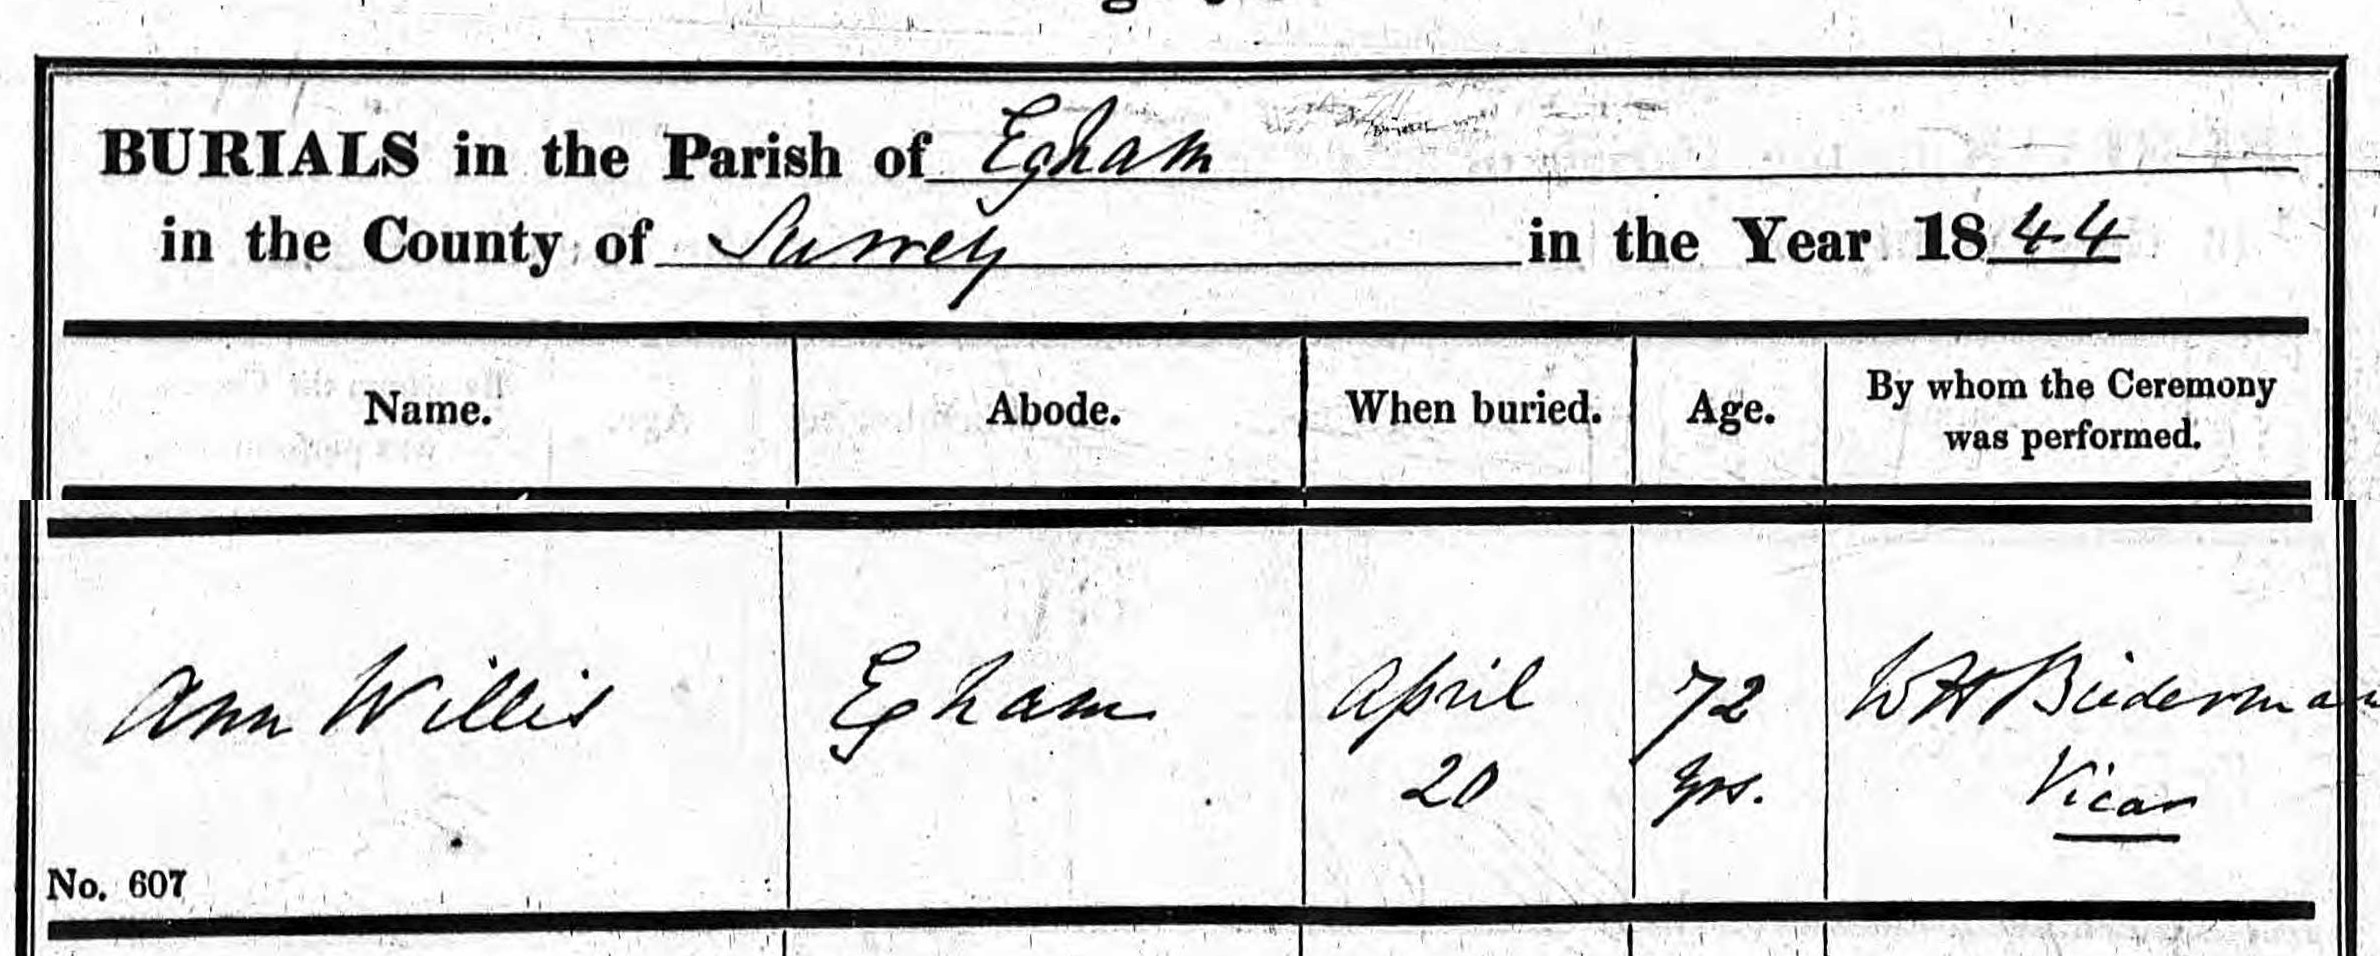 BURIALS in the Parish of Egham
in the County of Surrey in the Year 1844
Name. Abode. When buried. Age. By whom the Ceremony
was performed.
Ann Willis Egham April 72 W H Biederman
20 yrs. Vicar
No. 607